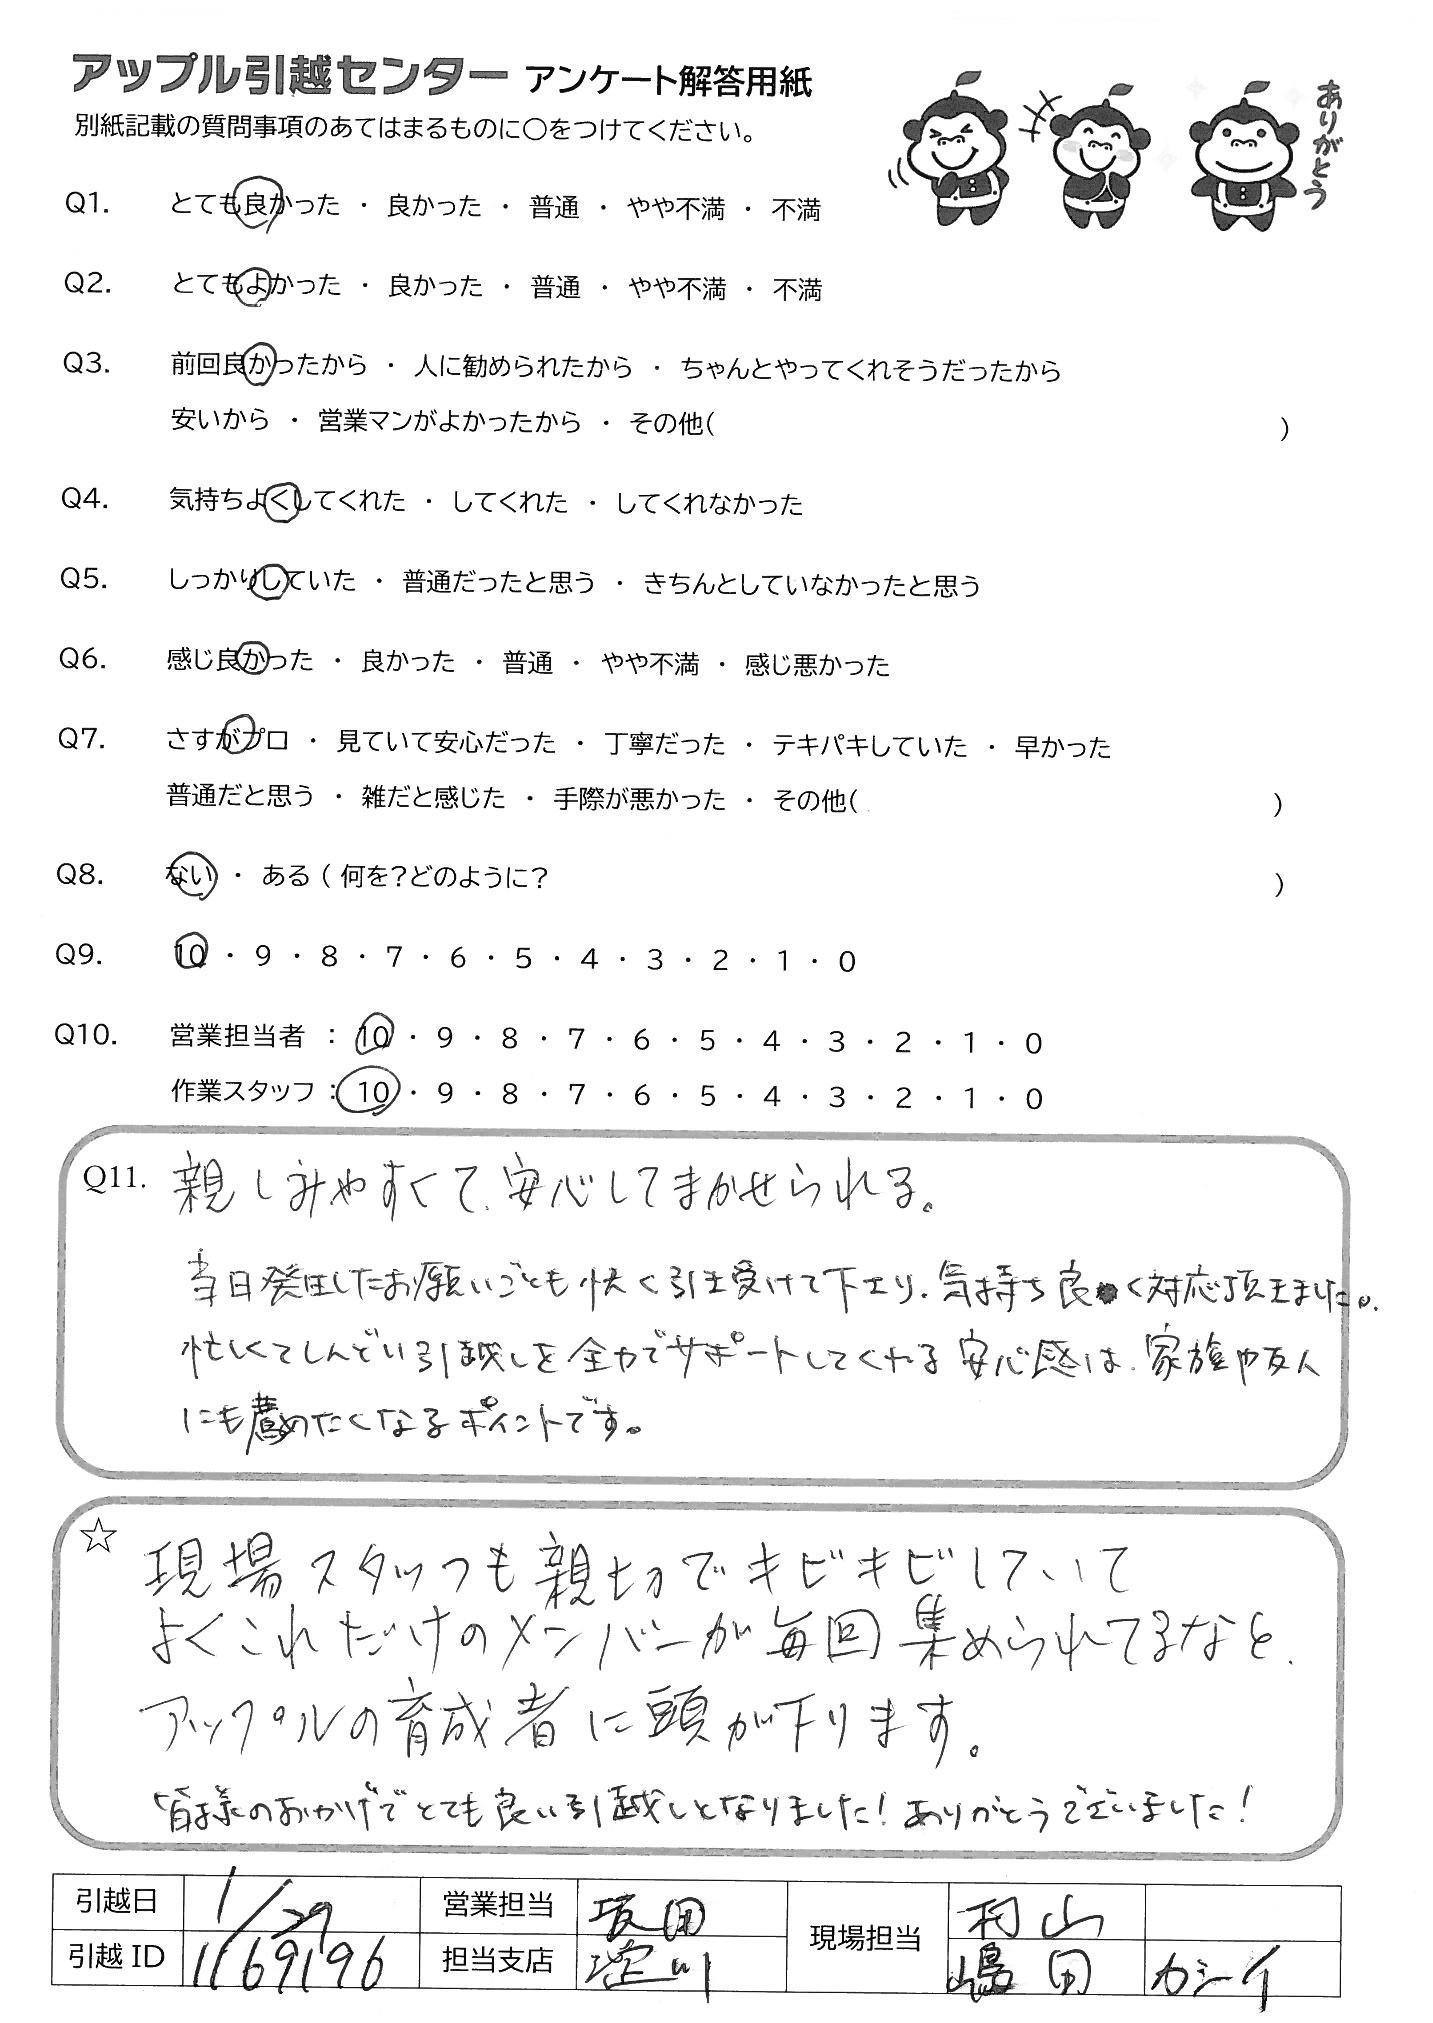 アップル引越センター アンケート解答用紙
別紙記載の質問事項のあてはまるものに○をつけてください。
ありがとう
Q1. とても良かった ・ 良かった ・ 普通 ・ やや不満 ・ 不満
Q2. とてもよかった ・ 良かった ・ 普通 ・ やや不満 ・ 不満
Q3. 前回良かったから ・ 人に勧められたから ・ ちゃんとやってくれそうだったから
安いから ・ 営業マンがよかったから ・ その他( )
Q4. 気持ちよくしてくれた ・ してくれた ・ してくれなかった
Q5. しっかりしていた ・ 普通だったと思う ・ きちんとしていなかったと思う
Q6. 感じ良かった ・ 良かった ・ 普通 ・ やや不満 ・ 感じ悪かった
Q7. さすがプロ ・ 見ていて安心だった ・ 丁寧だった ・ テキパキしていた ・ 早かった
普通だと思う ・ 雑だと感じた ・ 手際が悪かった ・ その他( )
Q8. ない ・ ある ( 何を?どのように? )
Q9. 10 ・ 9 ・ 8 ・ 7 ・ 6 ・ 5 ・ 4 ・ 3 ・ 2 ・ 1 ・ 0
Q10. 営業担当者 : 10 ・ 9 ・ 8 ・ 7 ・ 6 ・ 5 ・ 4 ・ 3 ・ 2 ・ 1 ・ 0
作業スタッフ : 10 ・ 9 ・ 8 ・ 7 ・ 6 ・ 5 ・ 4 ・ 3 ・ 2 ・ 1 ・ 0
Q11. 親しみやすくて、安心してまかせられる。
当日発生したお願いごとも快く引き受けて下さり、気持ち良く対応頂きました。
忙しくてしんどい引越しを全力でサポートしてくれる安心感は、家族や友人
にも薦めたくなるポイントです。
☆ 現場スタッフも親切でキビキビしていて
よくこれだけのメンバーが毎回集められてるなと、
アップルの育成者に頭が下ります。
皆様のおかげでとても良い引越しとなりました! ありがとうございました!
引越日 1/29 営業担当 坂田 現場担当 村山
引越ID 1169196 担当支店 淀川 嶋田 カシーイ